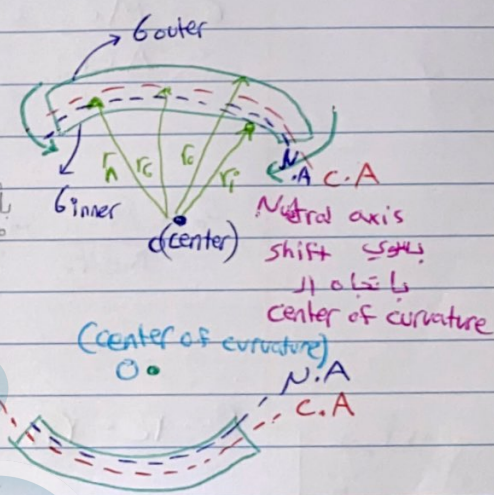 6 outer
rn
rc
ro
ri
N.A
C.A
6 inner
O(center)
Nutral axis
shift بسوي
باتجاه ال
center of curvature
(center of curvature)
O
N.A
C.A